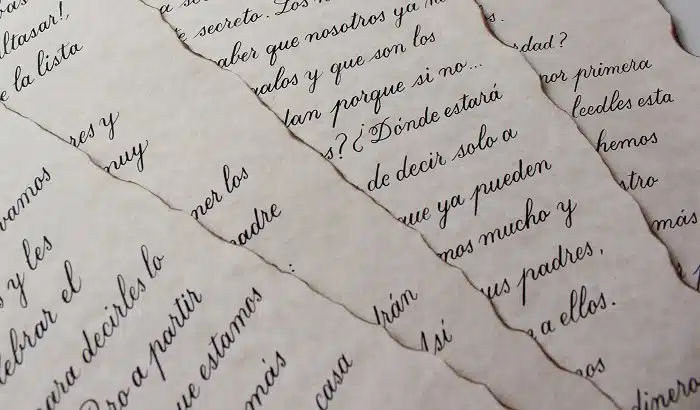 ltasar!,
e la lista
res y
muy
vamos
y les
lebrar el
para decirles lo
Pero a partir
ue estamos
más
casa
ner los
adre
:
drán
Así
e secreto. Los
aber que nosotros ya
galos y que son los
dan porque si no...
s? ¿Dónde estará
de decir solo a
que ya pueden
mos mucho y
us padres,
a ellos.
nos
s.
rdad?
por primera
leedles esta
hemos
stro
más
dinero